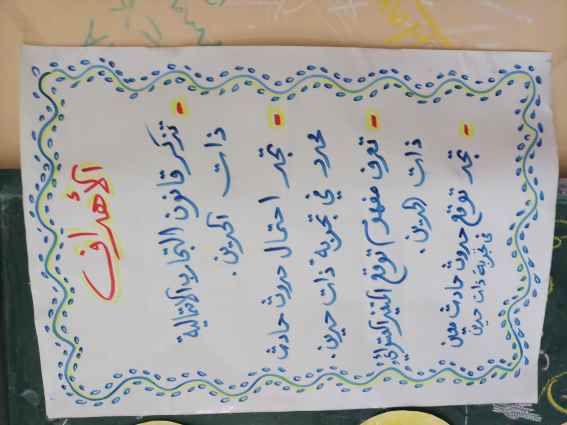 الأهداف
- تذكر قانون التجارب الاحتمالية
ذات الحدين.
- تجد احتمال حدوث حادث
محدد في تجربة ذات حدين.
- تعرف مفهوم توقع المتغير العشوائي
ذات الحدين.
- تجد توقع حدوث حادث معين
في تجربة ذات حدين